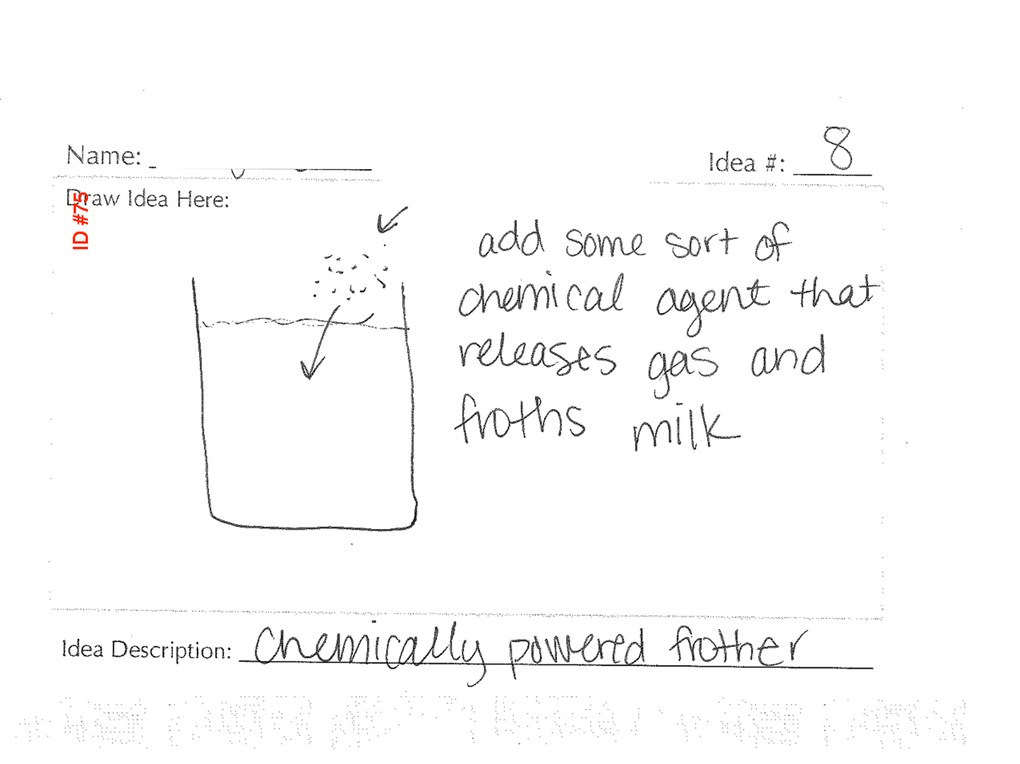 Name:
Idea #: 8
Draw Idea Here:
ID #75
add some sort of
chemical agent that
releases gas and
froths milk
Idea Description: Chemically powered frother